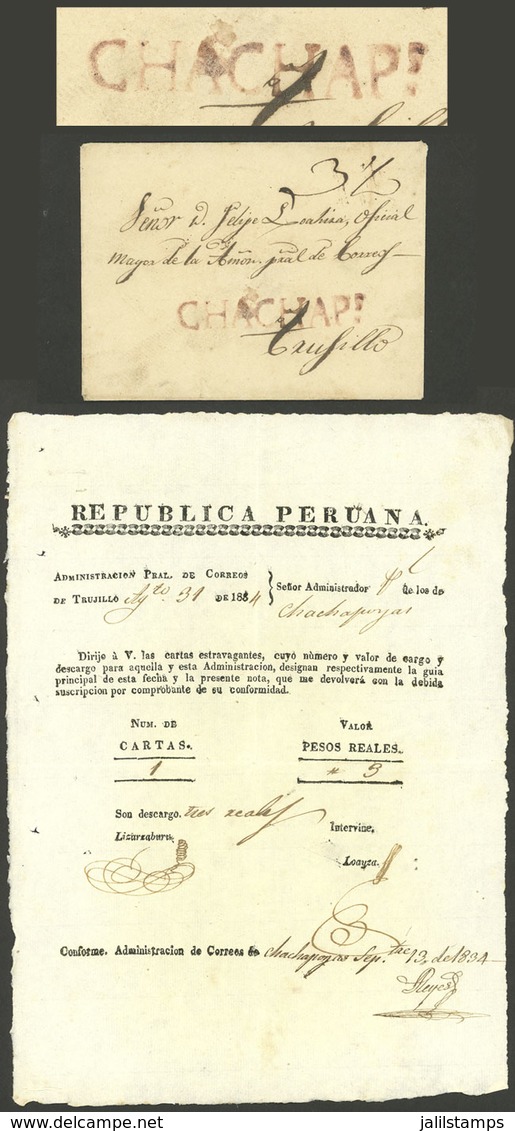 CHACHAPS
3
Señor D. Felipe Loahiza, Oficial
mayor de la Amôn. pral de Correos
CHACHAPS
Trusillo
REPUBLICA PERUANA.
ADMINISTRACION PRAL. DE CORREOS
DE TRUJILLO Agto 31 DE 1834
Señor Administrador Pl de los de
Chachapoyas
Dirijo à V. las cartas estravagantes, cuyo número y valor de cargo y
descargo para aquella y esta Administracion, designan respectivamente la guia
principal de esta fecha y la presente nota, que me devolverá con la debida
suscripcion por comprobante de su conformidad.
NUM. DE
CARTAS.
1
VALOR
PESOS REALES.
3
Son descargo. tres reales
Lizarzaburu.
Intervine.
Loayza.
Conforme. Administracion de Correos de Chachapoyas Sep.tre 13, de 1834
Reyes
jalilstamps